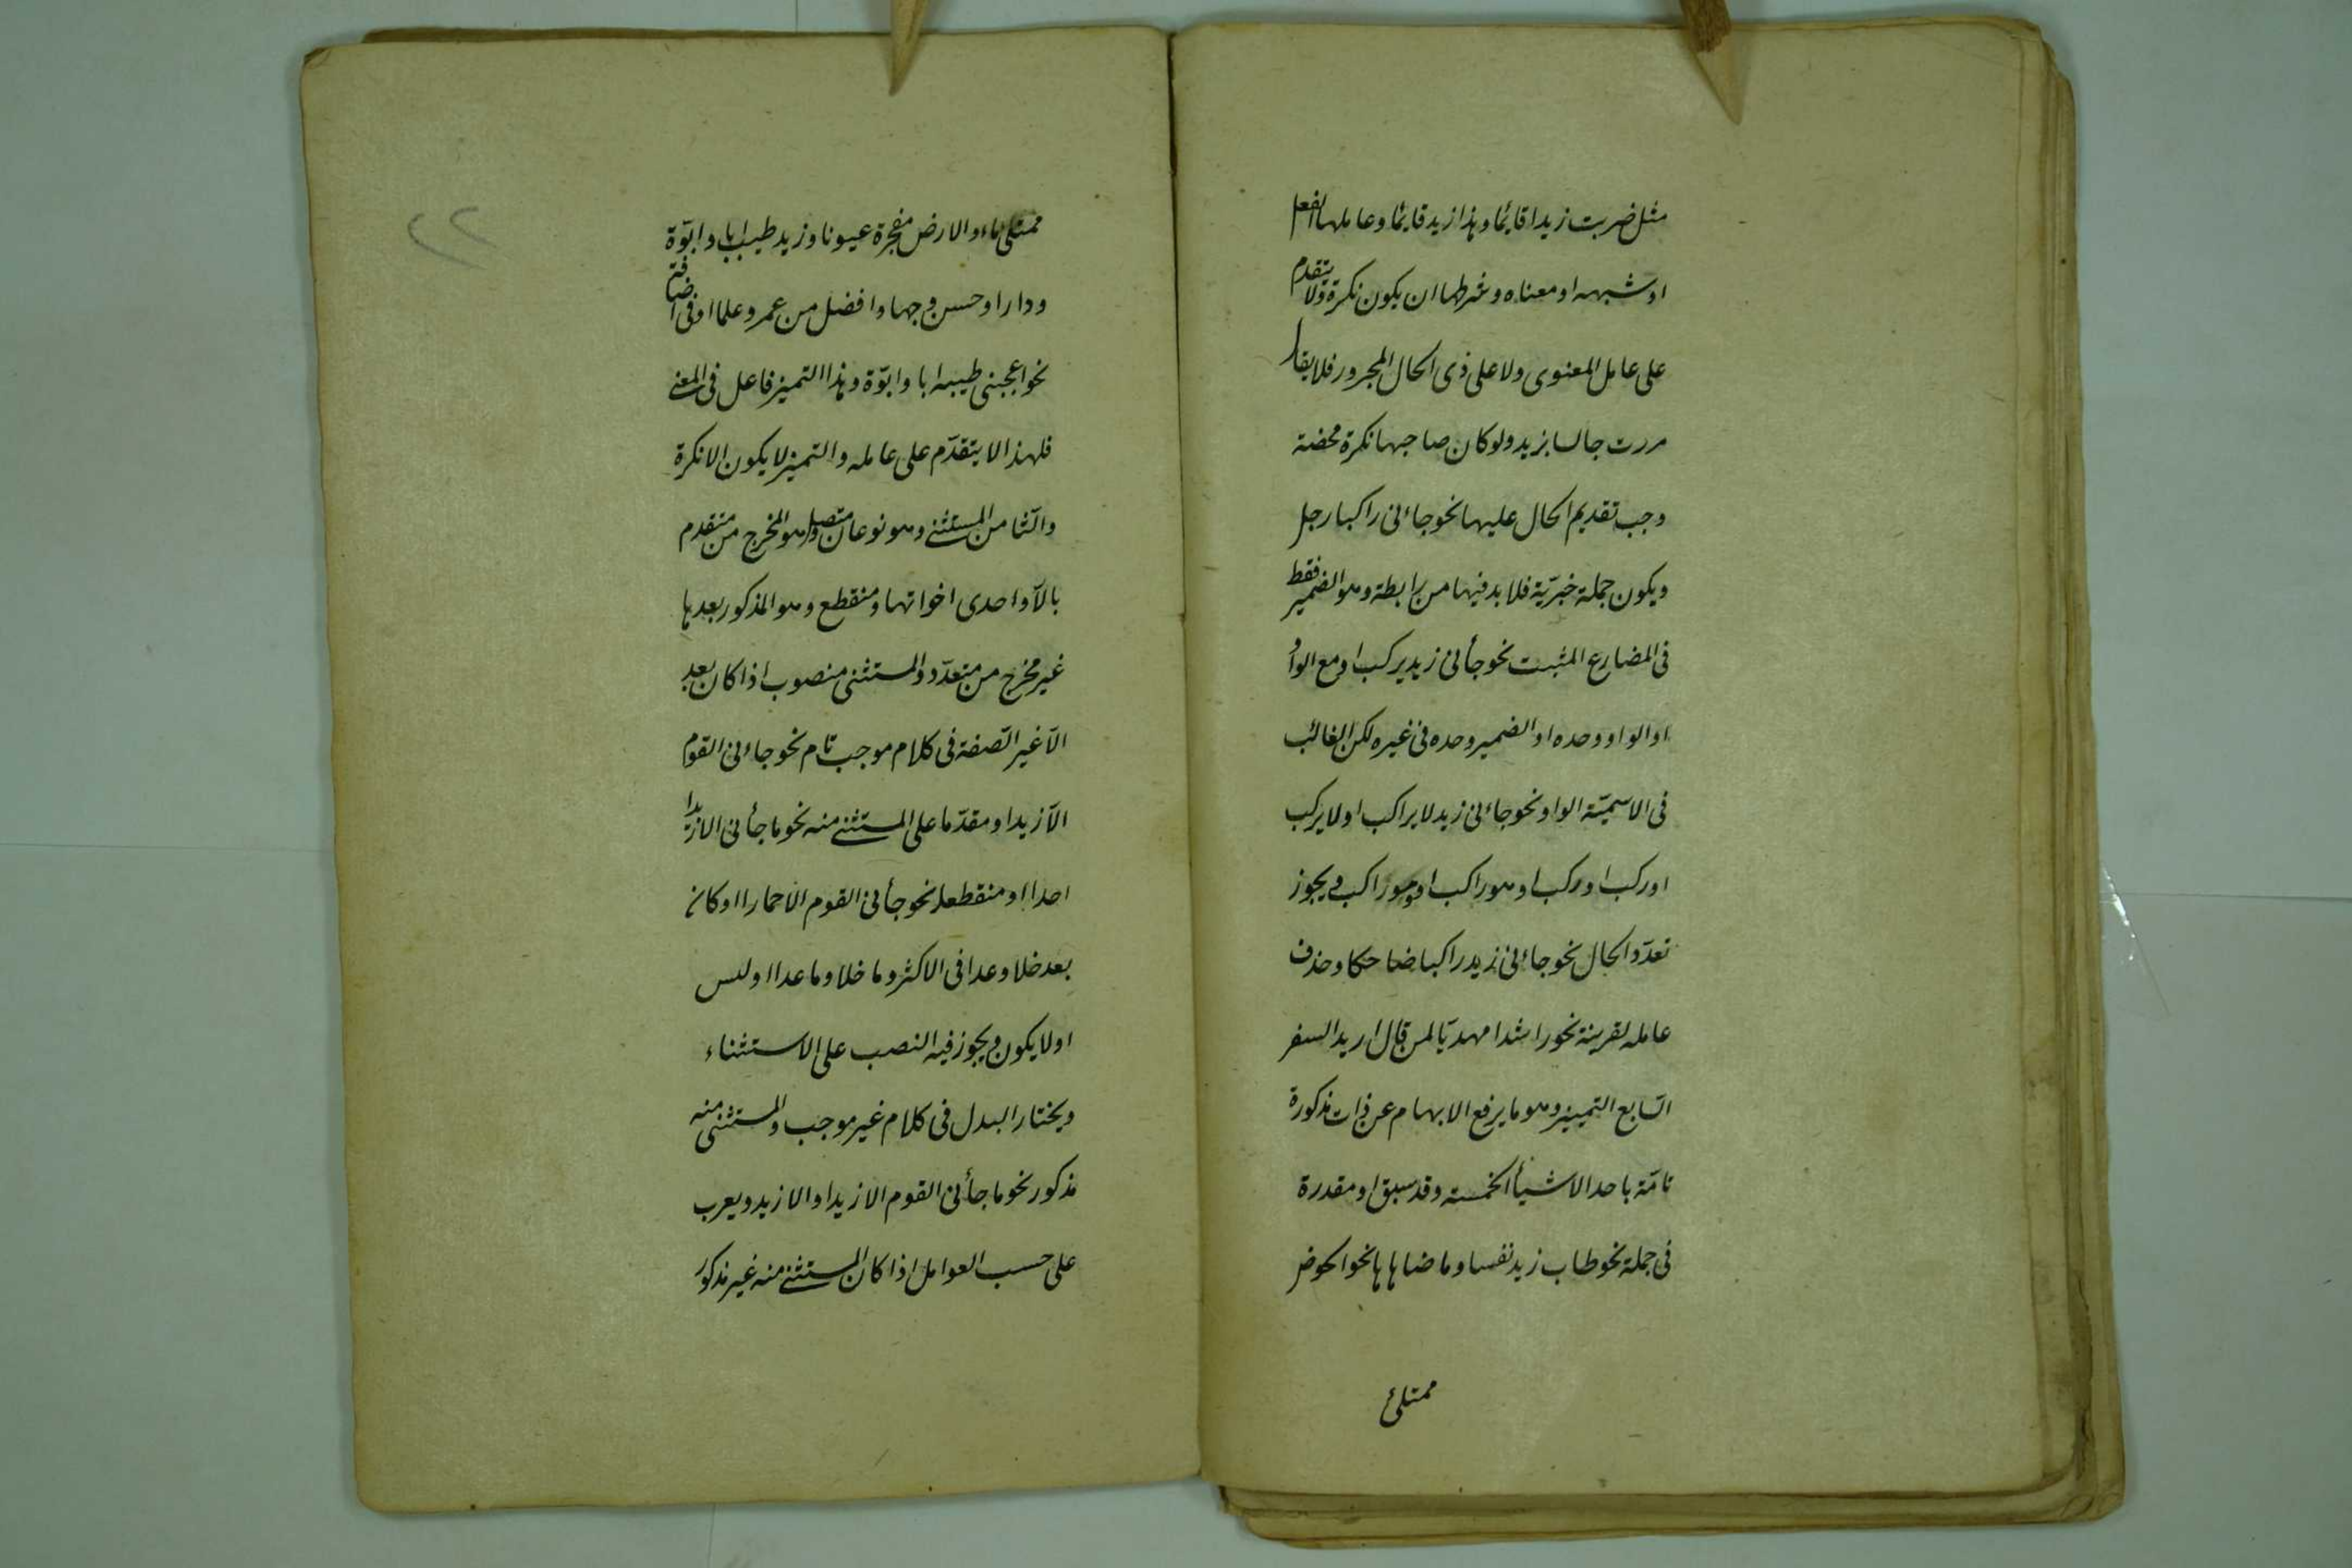 مثل ضربت زیدا قائما وهذا زید قائما وعاملها الفعل
او شبهه او معناه وشرطها ان یکون نکرة ولا یتقدم
علی عامل المعنوی ولا علی ذی الحال المجرور فلا یقال
مررت جالسا بزید ولو کان صاحبها نکرة محضة
وجب تقدیم الحال علیها نحو جاءنی راکبا رجل
ویکون جملة خبریّة فلا بد فیها من رابطة وهو الضمیر فقط
فی المضارع المثبت نحو جأنی زید یرکب او مع الواو
او الواو وحده او الضمیر وحده فی غیره لکن الغالب
فی الاسمیّة الواو نحو جاءنی زید لا یراکب او لا یرکب
او رکب او رکب او هو راکب او هو راکب ویجوز
تعدّد الحال نحو جاءنی زید راکبا ضاحکا وحذف
عامله لقرینة نحو راشدا مهدیّا لمن قال ارید السفر
السّابع التمییز وهو ما یرفع الابهام عن ذات مذکورة
تامّة باحد الاشیأ الخمسة وقد سبق او مقدرة
فی جملة نحو طاب زید نفسا وما ضاهاها نحو الحوض
ممتلئ
۲۲
ممتلئ ماء والارض مفجرة عیونا وزید طیب ابا وابوّة
ودارا وحسن وجها وافضل من عمرو علما او فی اضافة
نحو اعجبنی طیبه ابا وابوّة وهذا التمیز فاعل فی المعنی
فلهذا لا یتقدّم علی عامله والتمیز لا یکون الا نکرة
والثّامن المستثنی وهو نوعان متصل وهو المخرج من متقدم
بالاّ واحدی اخواتها ومنقطع وهو المذکور بعدها
غیر مخرج من متعدّد والمستثنی منصوب اذا کان بعد
الاّ غیر الصّفة فی کلام موجب تام نحو جاءنی القوم
الاّ زیدا ومقدّما علی المستثنی منه نحو ما جأنی الا زیدا
احدا او منقطعا نحو جأنی القوم الا حمارا او کان
بعد خلا وعدا فی الاکثر وما خلا وما عدا اولیس
او لا یکون ویجوز فیه النصب علی الاستثناء
ویختار البدل فی کلام غیر موجب والمستثنی منه
مذکور نحو ما جأنی القوم الا زیدا والا زید ویعرب
علی حسب العوامل اذا کان المستثنی منه غیر مذکور